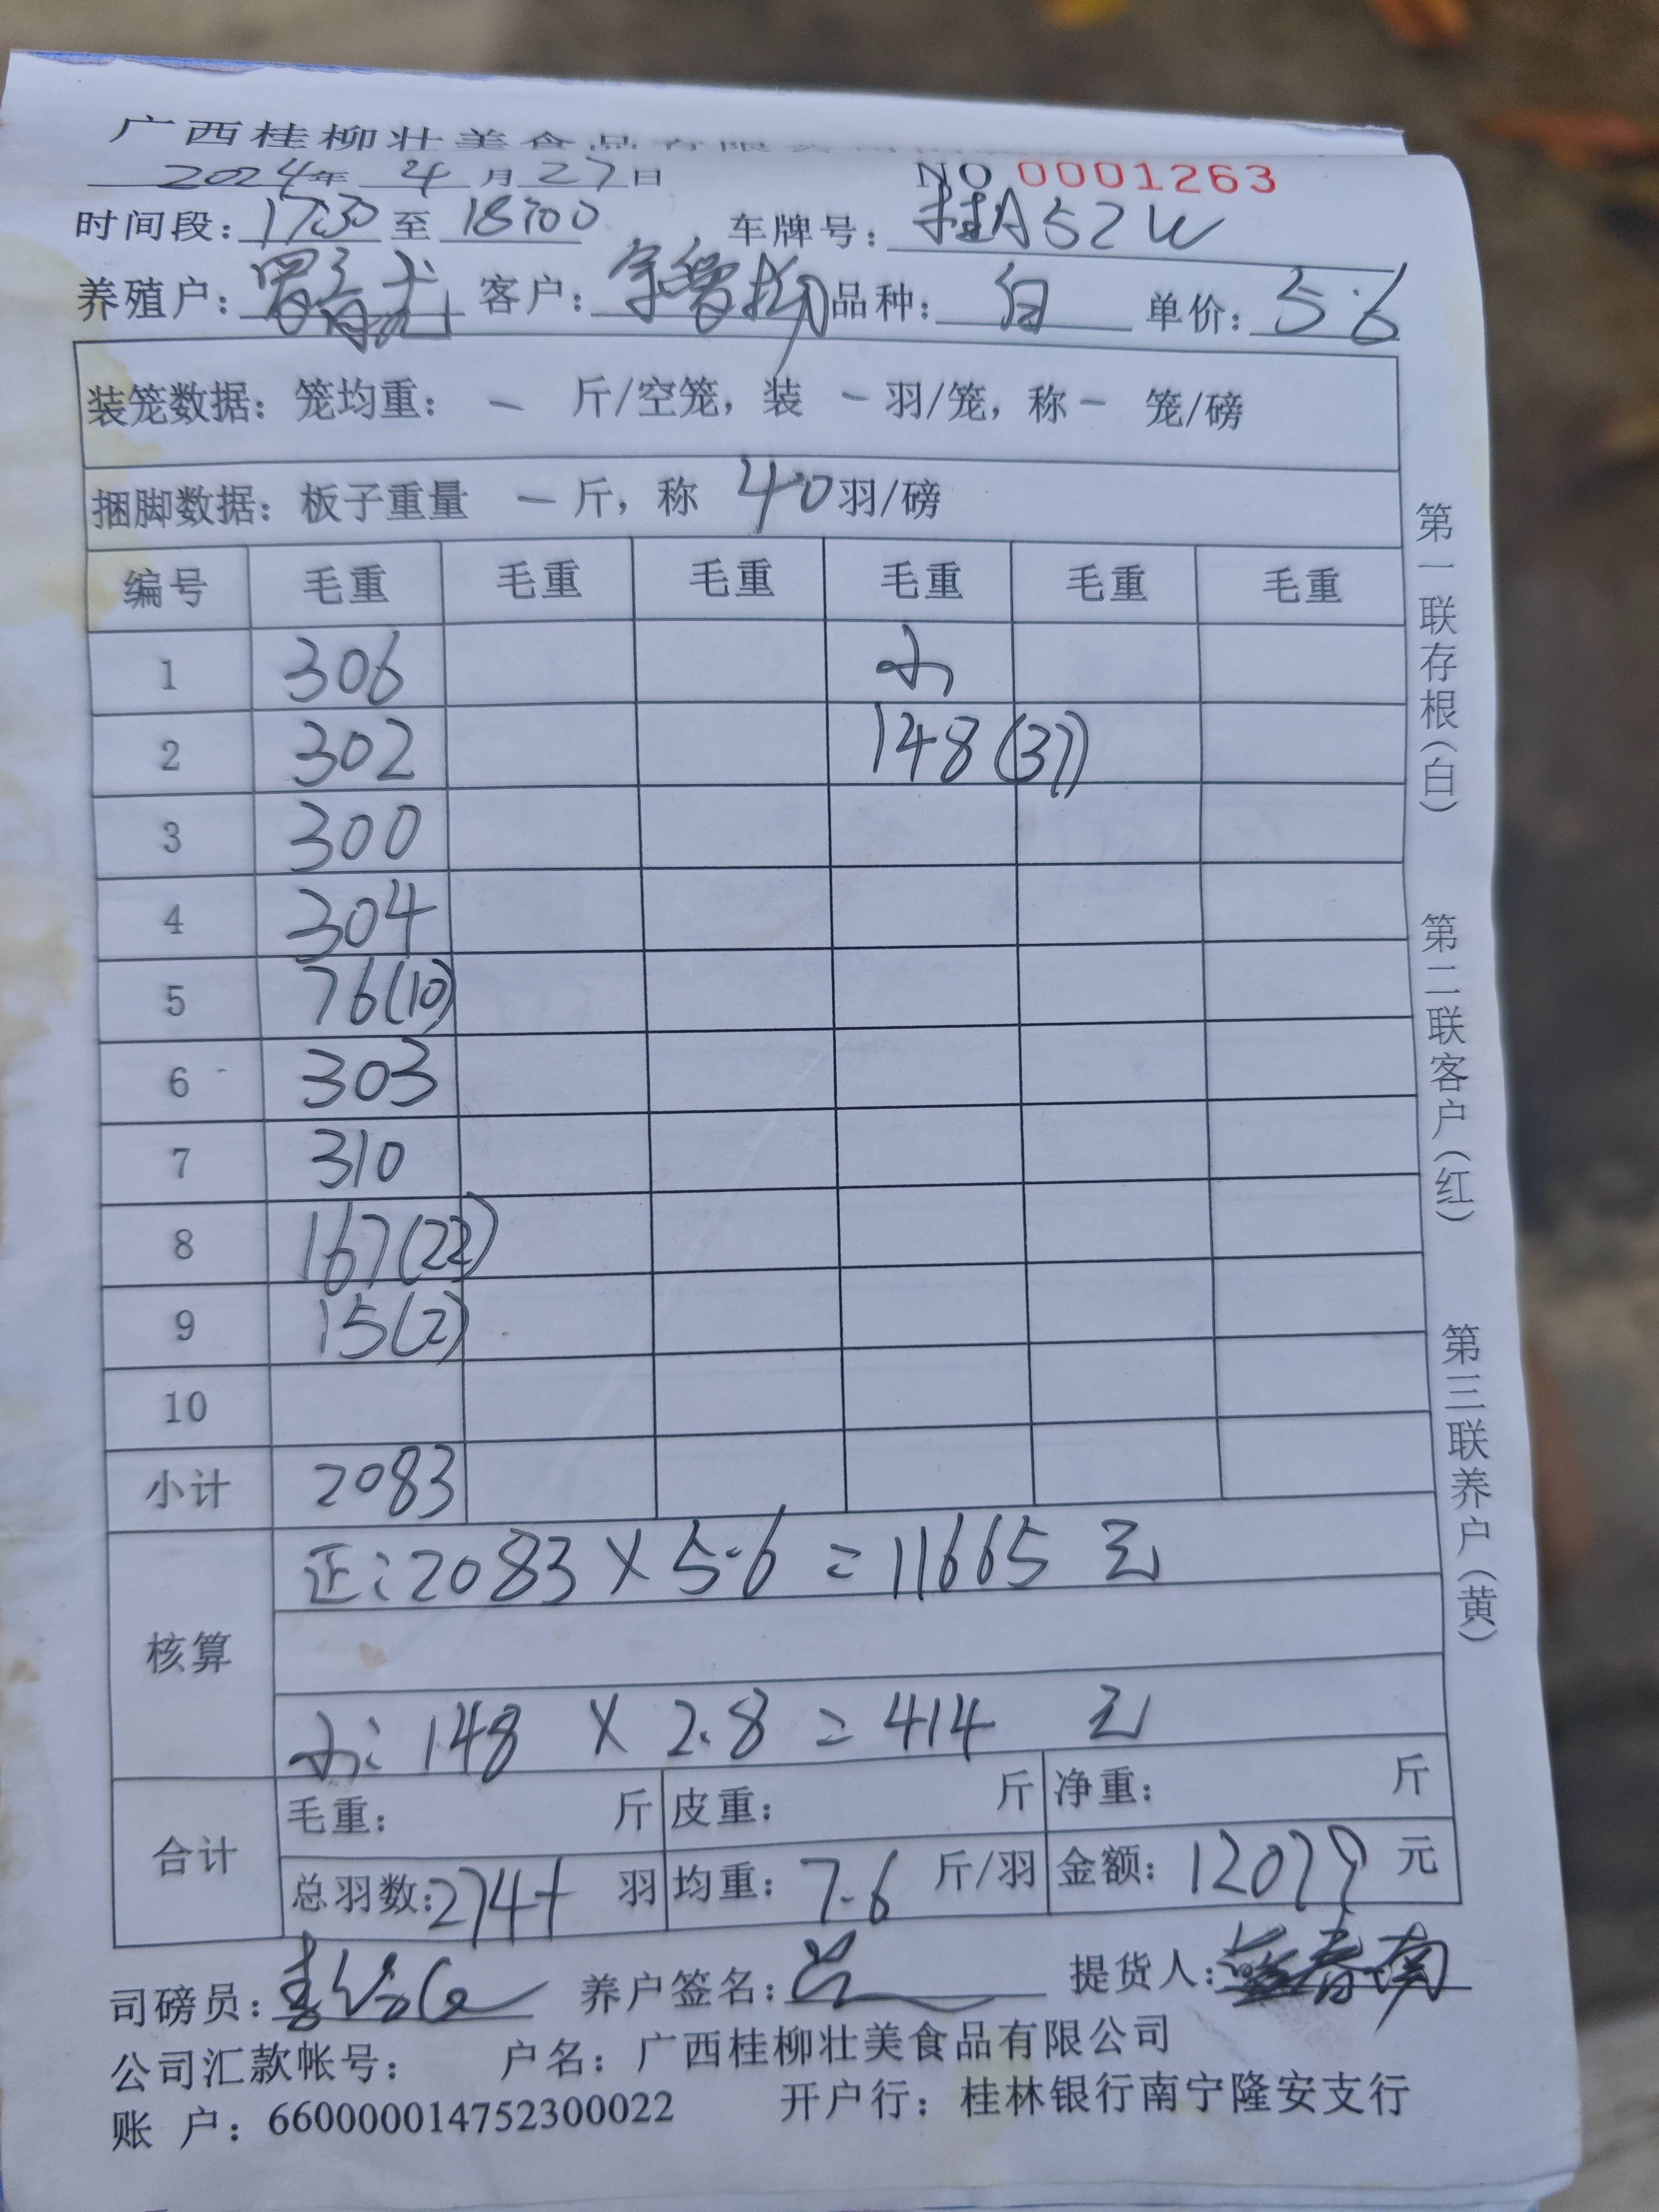 广西桂柳壮美食品有限公司
2024年 4月27日 NO 0001263
时间段: 17:30 至 18:00 车牌号: 桂A52W
养殖户: 客户: 品种: 白 单价: 5.6
装笼数据: 笼均重: — 斤/空笼, 装 — 羽/笼, 称 — 笼/磅
捆脚数据: 板子重量 — 斤, 称 40羽/磅
编号 毛重 毛重 毛重 毛重 毛重 毛重
1 306 小
2 302 148(37)
3 300
4 304
5 76(10)
6 303
7 310
8 167(22)
9 15(2)
10
小计 2083
正: 2083 × 5.6 = 11665 元
核算
小: 148 × 2.8 = 414 元
合计 毛重: 斤 皮重: 斤 净重: 斤
总羽数: 羽 均重: 7.6 斤/羽 金额: 12079 元
司磅员: 养户签名: 提货人:
公司汇款帐号: 户名: 广西桂柳壮美食品有限公司
账 户: 660000014752300022 开户行: 桂林银行南宁隆安支行
第一联存根(白)
第二联客户(红)
第三联养户(黄)